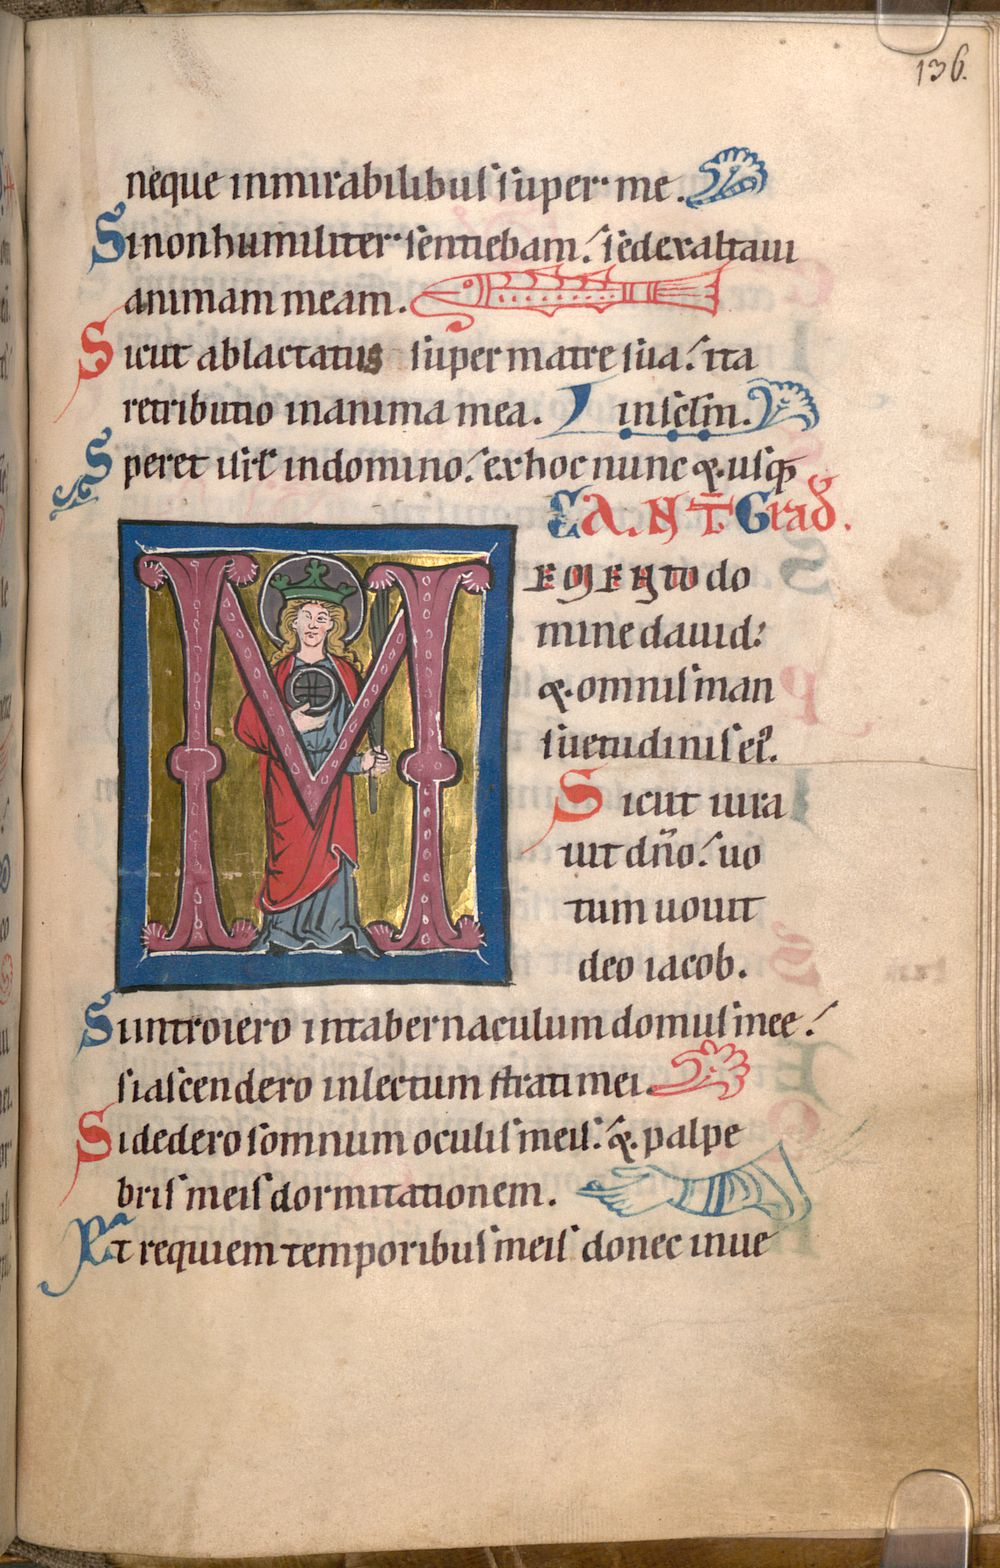 136.
neque in mirabilibus super me.
Si non humiliter sentiebam. sed exaltavi
animam meam.
Sicut ablactatus super matre sua. ita
retributio in anima mea. in sclm.
Speret isrl in domino. ex hoc nunc & usq
CANT. Grad.
MEMENTO do
mine dauid.
& omnis man
suetudinis ei.
Sicut iura
uit dño. uo
tum uouit
deo iacob.
Si introiero in tabernaculum domus mee.
si ascendero in lectum strati mei.
Si dedero somnum oculis meis. & palpe
bris meis dormitationem.
Et requiem temporibus meis donec inue